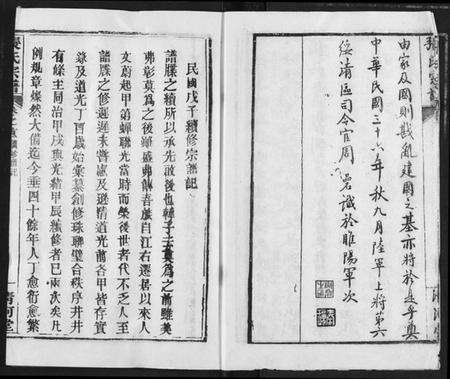 由家及國則戡亂建國之基亦將於是乎奠
中華民國三十六年秋九月陸軍上將第六
綏清區司令官周嵒識於睢陽軍次
民國戊子續修宗譜記
譜牒之續所以承先啟後也韓子云莫為之前雖美
弗彰莫為之後雖盛弗傳吾戲自江右遷居以來人
文蔚起甲第蟬聯光當時而榮後世者代不乏人至
譜牒之修邇遠未嘗慮及逕情道光前各甲皆存實
錄及道光丁酉歲始集纂創修珠聯璧合秩序井井
有條至同治甲戌與光緒甲辰續修者已兩次矣凡
例規章燦然大備迄今垂四十餘年人丁愈衍愈繁
張氏宗譜
清河堂